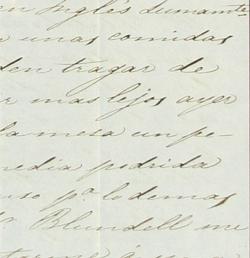 en Inglés sumamte
e unas comidas
den tragar de
r mas lejos ayer
la mesa un pe-
media podrida
uso pa. lo demas
Blundell me